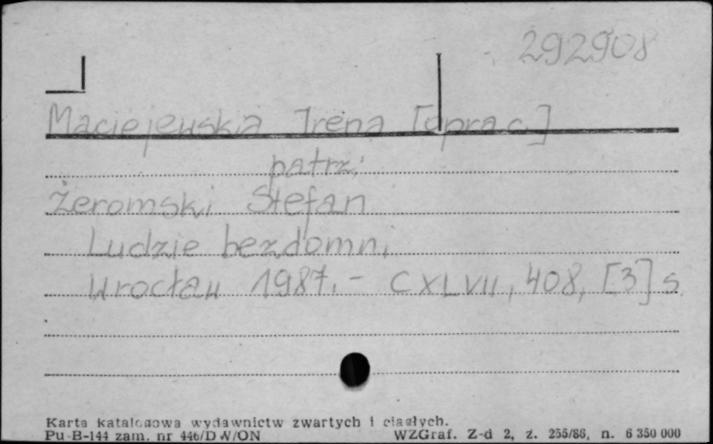 292908
Maciejewska Irena [oprac.]
patrz:
Żeromski Stefan
Ludzie bezdomni
Wrocław 1987. - CXLVII, 408, [3] s.
Karta katalogowa wydawnictw zwartych i ciągłych.
Pu-B-144 zam. nr 446/DW/ON WZGraf. Z-d 2, z. 255/86, n. 6 350 000